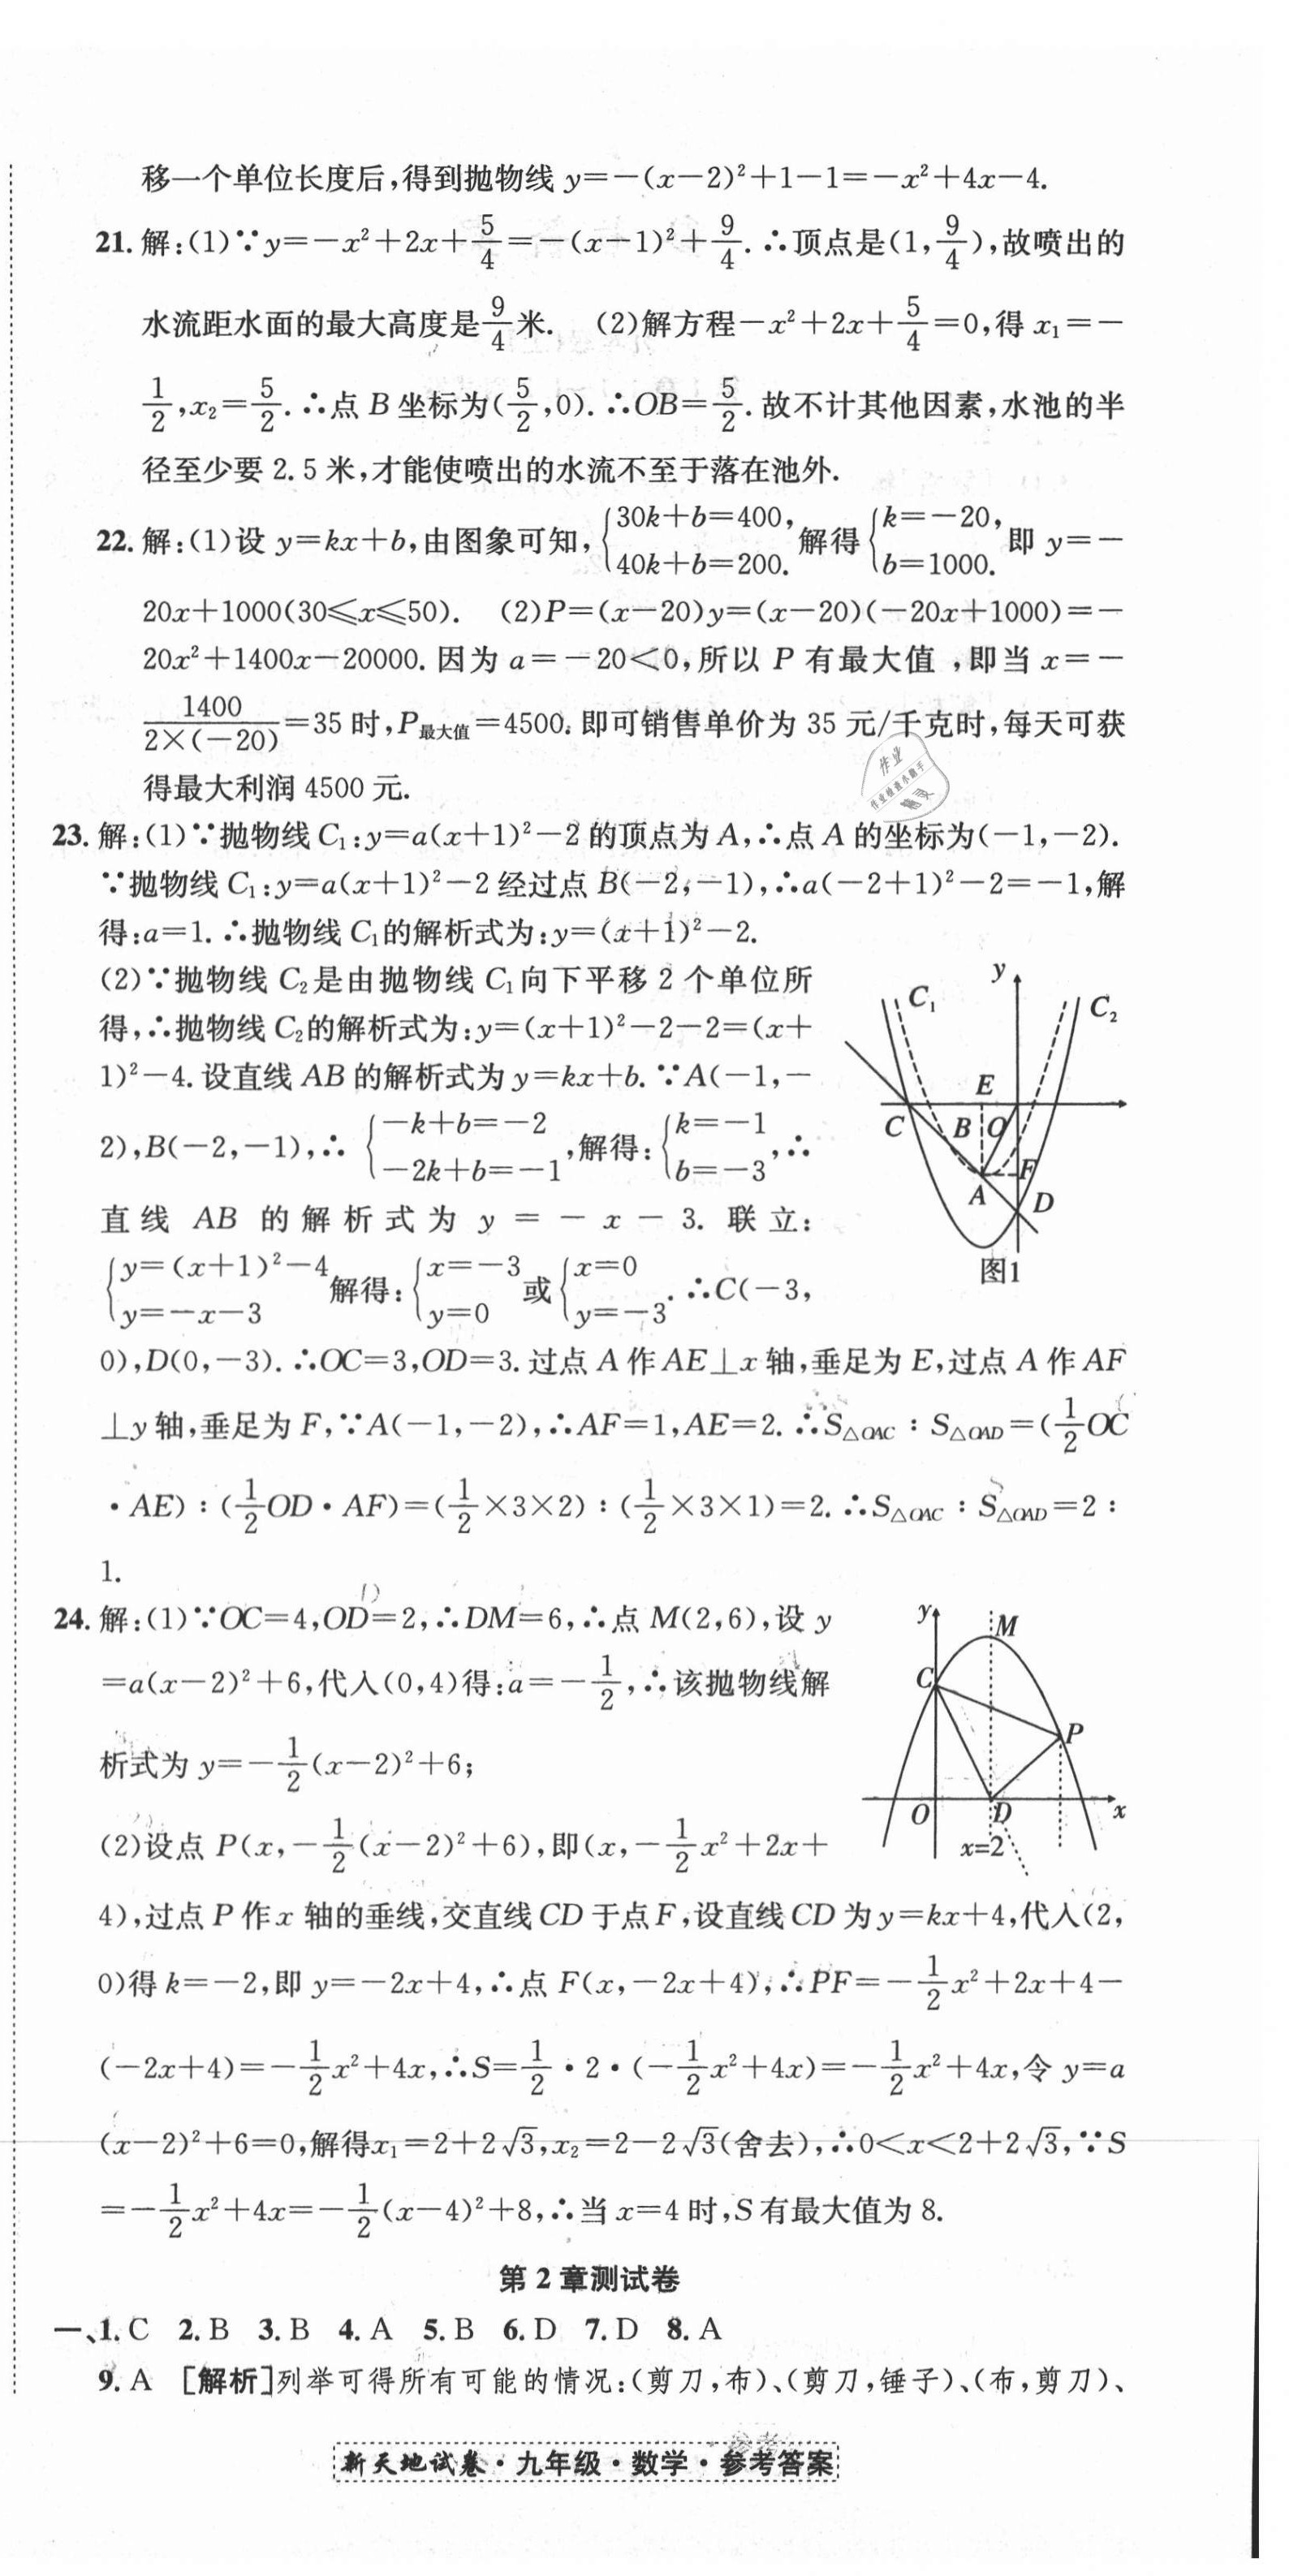 移一个单位长度后,得到抛物线 y=-(x-2)²+1-1=-x²+4x-4.
21. 解:(1)∵y=-x²+2x+5/4=-(x-1)²+9/4. ∴顶点是(1,9/4),故喷出的
水流距水面的最大高度是9/4米. (2)解方程-x²+2x+5/4=0,得 x₁=-
1/2,x₂=5/2. ∴点 B 坐标为(5/2,0). ∴OB=5/2. 故不计其他因素,水池的半
径至少要 2.5 米,才能使喷出的水流不至于落在池外.
22. 解:(1)设 y=kx+b,由图象可知,{30k+b=400, 40k+b=200. 解得{k=-20, b=1000. 即 y=-
20x+1000(30≤x≤50). (2)P=(x-20)y=(x-20)(-20x+1000)=-
20x²+1400x-20000. 因为 a=-20<0,所以 P 有最大值 ,即当 x=-
1400/(2×(-20))=35 时,P最大值=4500. 即可销售单价为 35 元/千克时,每天可获
得最大利润 4500 元.
作业
作业检查小助手
精灵
23. 解:(1)∵抛物线 C₁:y=a(x+1)²-2 的顶点为 A,∴点 A 的坐标为(-1,-2).
∵抛物线 C₁:y=a(x+1)²-2 经过点 B(-2,-1),∴a(-2+1)²-2=-1,解
得:a=1. ∴抛物线 C₁的解析式为:y=(x+1)²-2.
(2)∵抛物线 C₂是由抛物线 C₁向下平移 2 个单位所
得,∴抛物线 C₂的解析式为:y=(x+1)²-2-2=(x+
1)²-4. 设直线 AB 的解析式为 y=kx+b. ∵A(-1,-
2),B(-2,-1),∴ {-k+b=-2 -2k+b=-1,解得:{k=-1 b=-3,∴
直线 AB 的解析式为 y=-x-3. 联立:
{y=(x+1)²-4 y=-x-3 解得:{x=-3 y=0 或{x=0 y=-3. ∴C(-3,
y
C₁
C₂
E
C
B
O
F
A
D
图1
0),D(0,-3). ∴OC=3,OD=3. 过点 A 作 AE⊥x 轴,垂足为 E,过点 A 作 AF
⊥y 轴,垂足为 F,∵A(-1,-2),∴AF=1,AE=2. ∴S△OAC : S△OAD=(1/2OC
·AE) : (1/2OD·AF)=(1/2×3×2) : (1/2×3×1)=2. ∴S△OAC : S△OAD=2 :
1.
24. 解:(1)∵OC=4,OD=2,∴DM=6,∴点 M(2,6),设 y
=a(x-2)²+6,代入(0,4)得:a=-1/2,∴该抛物线解
析式为 y=-1/2(x-2)²+6;
(2)设点 P(x,-1/2(x-2)²+6),即(x,-1/2x²+2x+
y
M
C
P
O
D
x
x=2
4),过点 P 作 x 轴的垂线,交直线 CD 于点 F,设直线 CD 为 y=kx+4,代入(2,
0)得 k=-2,即 y=-2x+4,∴点 F(x,-2x+4),∴PF=-1/2x²+2x+4-
(-2x+4)=-1/2x²+4x,∴S=1/2·2·(-1/2x²+4x)=-1/2x²+4x,令 y=a
(x-2)²+6=0,解得x₁=2+2√3,x₂=2-2√3(舍去),∴0<x<2+2√3,∵S
=-1/2x²+4x=-1/2(x-4)²+8,∴当 x=4 时,S 有最大值为 8.
第 2 章测试卷
一、1. C 2. B 3. B 4. A 5. B 6. D 7. D 8. A
9. A [解析]列举可得所有可能的情况:(剪刀,布)、(剪刀,锤子)、(布,剪刀)、
新天地试卷·九年级·数学·参考答案